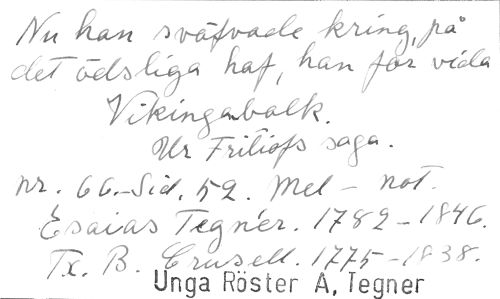 Nu han sväfvade kring, på
det ödsliga haf, han for vida
Vikingabalk.
Ur Fritiofs saga.
nr. 66.-Sid. 52. Mel - not.
Esaias Tegnér. 1782-1846.
Tx. B. Crusell. 1775-1838.
Unga Röster A, Tegner